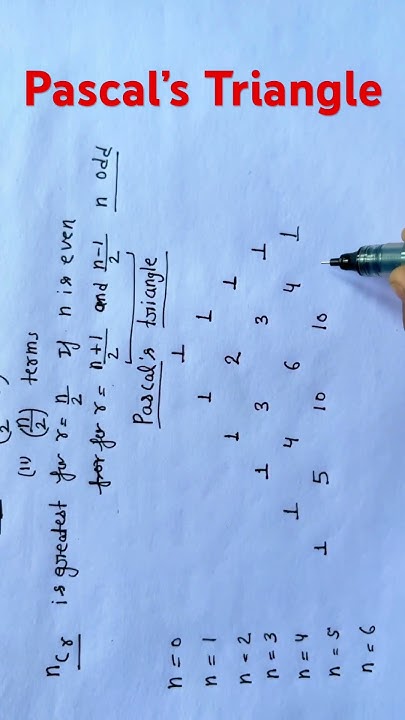 Pascal's Triangle
(11) (n/2) terms
nCr is greatest for r = n/2 If n is even
for r = n+1/2 and n-1/2 n odd
Pascal's triangle
n = 0 1
n = 1 1 1
n = 2 1 2 1
n = 3 1 3 3 1
n = 4 1 4 6 4 1
n = 5 1 5 10 10
n = 6